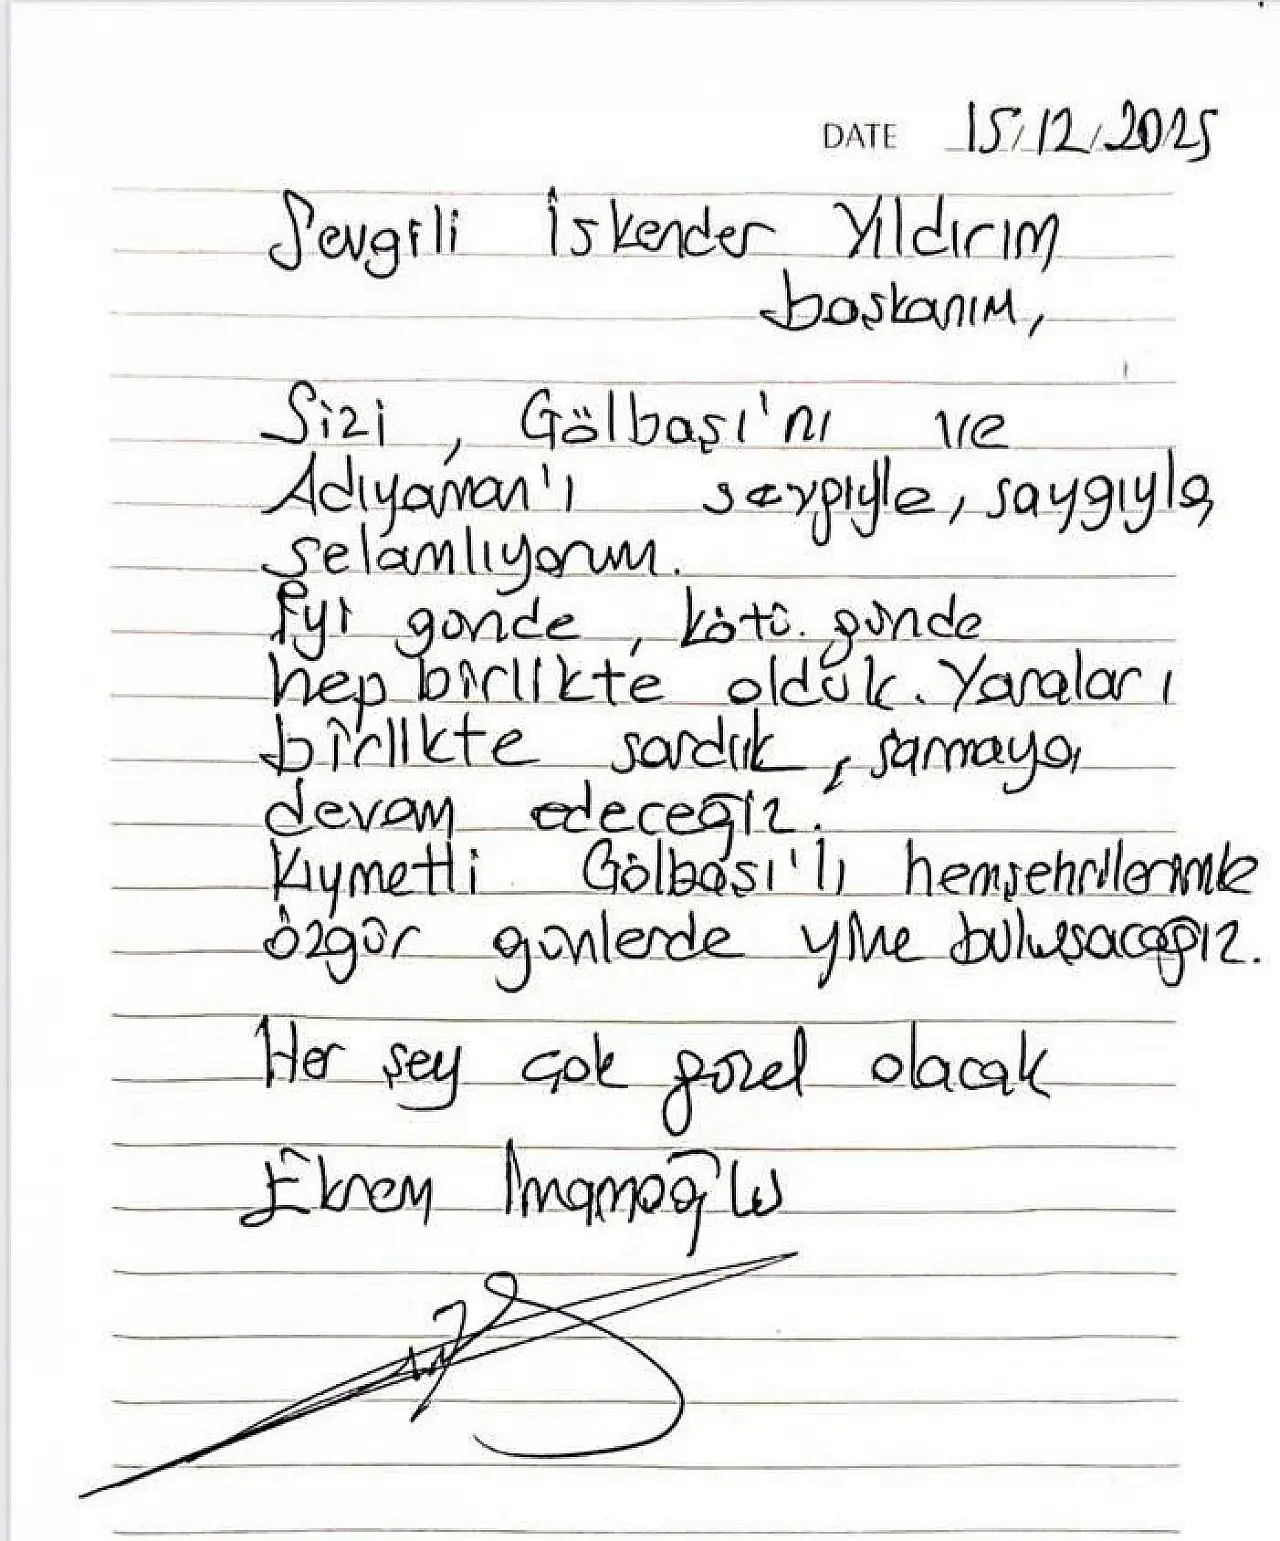 DATE 15/12/2025
Sevgili İskender Yıldırım
başkanım,
Sizi, Gölbaşı'nı ve
Adıyaman'ı sevgiyle, saygıyla
selamlıyorum.
İyi günde, kötü günde
hep birlikte olduk. Yaraları
birlikte sardık, sarmaya
devam edeceğiz.
Kıymetli Gölbaşı'lı hemşehrilerimle
özgür günlerde yine buluşacağız.
Her şey çok güzel olacak
Ekrem İmamoğlu